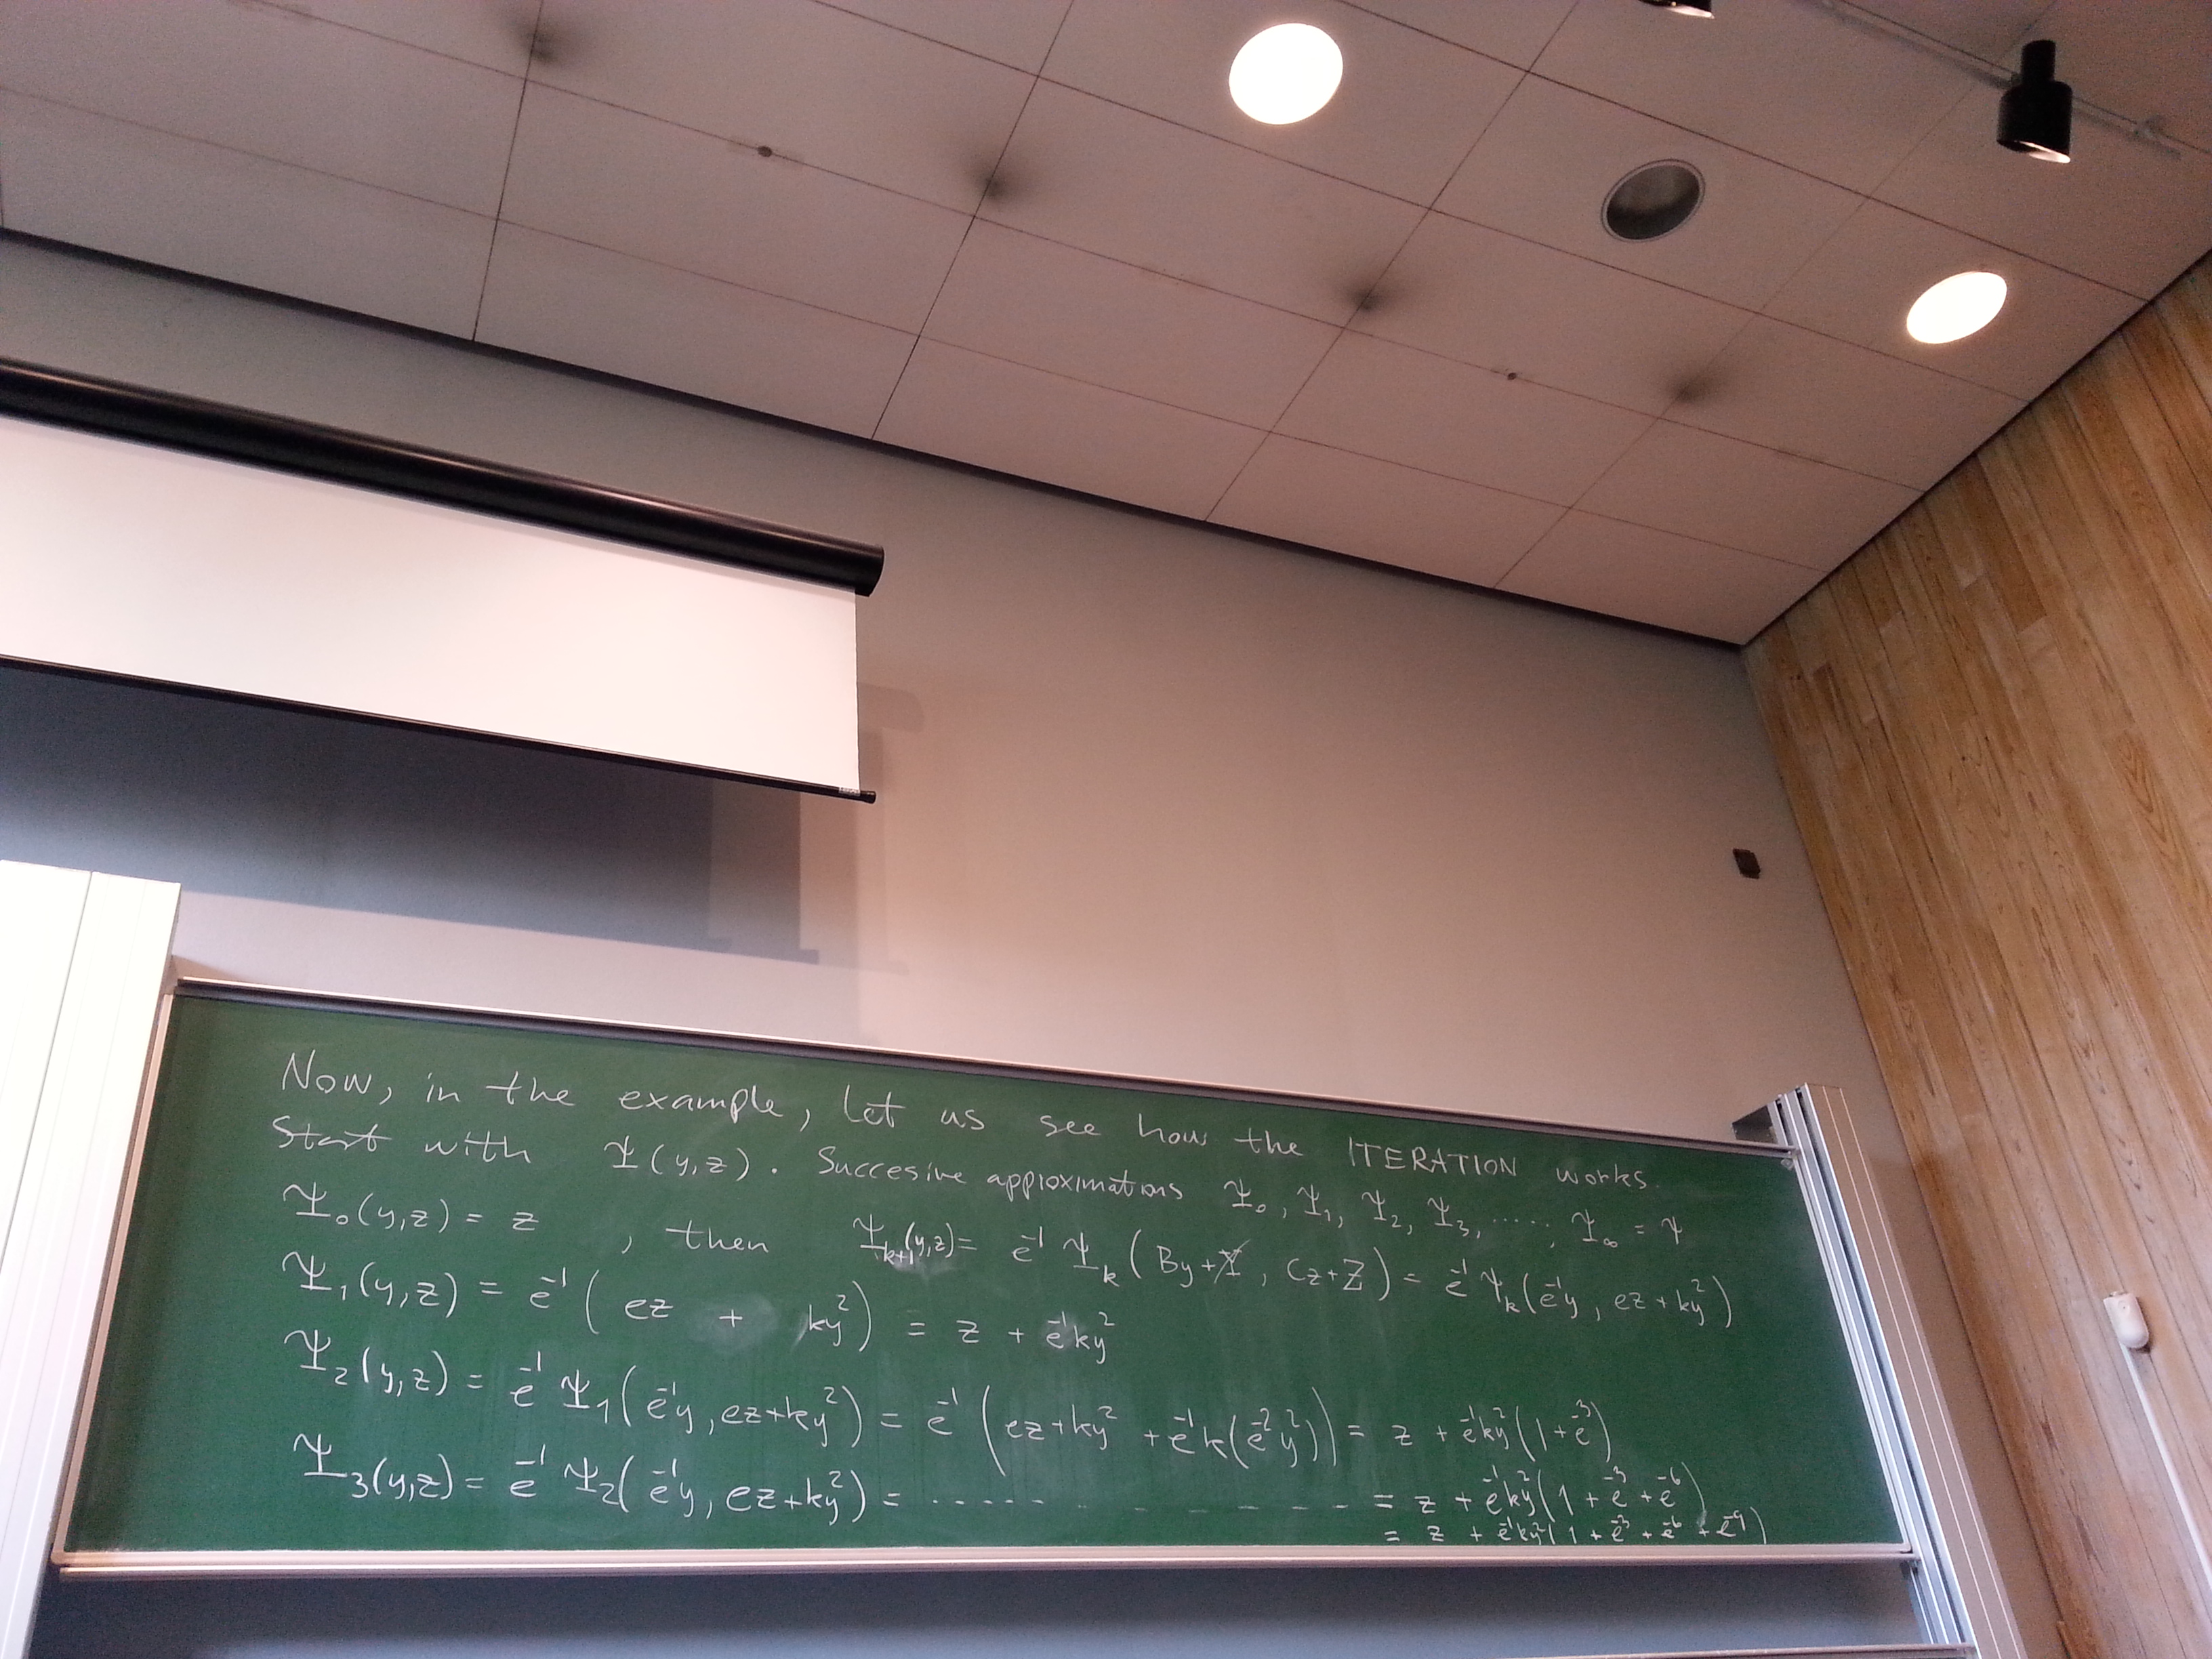 Now, in the example, let us see how the ITERATION works.
Start with Ψ(y,z). Succesive approximations Ψ₀, Ψ₁, Ψ₂, Ψ₃, ....., Ψ∞ = Ψ
Ψ₀(y,z) = z , then Ψₖ₊₁(y,z) = e⁻¹ Ψₖ(By+Y, Cz+Z) = e⁻¹Ψₖ(e⁻¹y, ez+ky²)
Ψ₁(y,z) = e⁻¹(ez + ky²) = z + e⁻¹ky²
Ψ₂(y,z) = e⁻¹ Ψ₁(e⁻¹y, ez+ky²) = e⁻¹(ez+ky² + e⁻¹k(e⁻²y²)) = z + e⁻¹ky²(1+e⁻³)
Ψ₃(y,z) = e⁻¹ Ψ₂(e⁻¹y, ez+ky²) = ..... .. - - - - - - = z + e⁻¹ky²(1 + e⁻³ + e⁻⁶)
= z + e⁻¹ky²(1 + e⁻³ + e⁻⁶ + e⁻⁹)